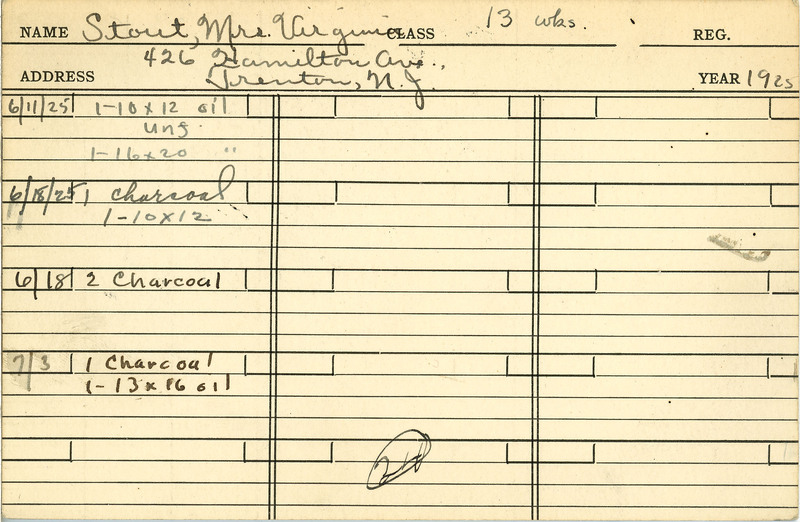 NAME Stout, Mrs. Virginia CLASS 13 wks. REG.
426 Hamilton Ave.,
ADDRESS Trenton, N.J. YEAR 1925
6/11/25 1-10x12 oil
Ung.
1-16x20 "
6/18/25 1 charcoal
1-10x12
6/18 2 Charcoal
7/3 1 Charcoal
1-13x16 oil